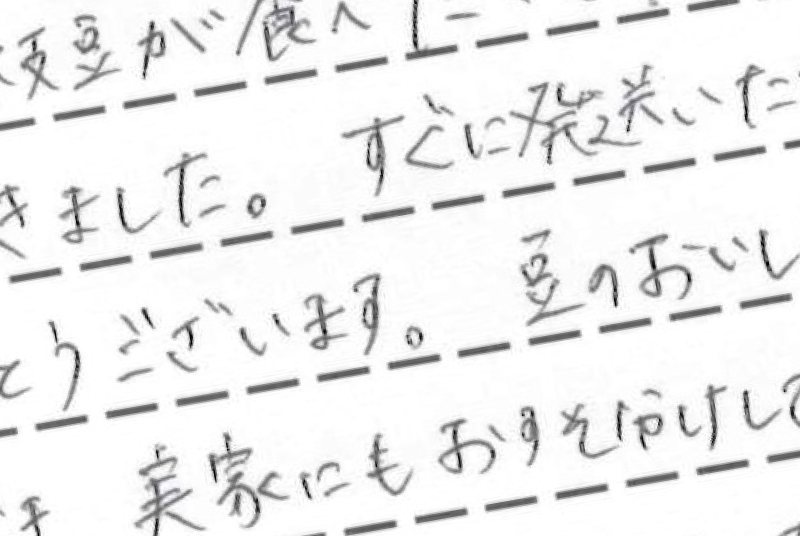 枝豆が食べた
きました。すぐに発送いただ
とうございます。豆のおいし
実家にもおすそ分けして